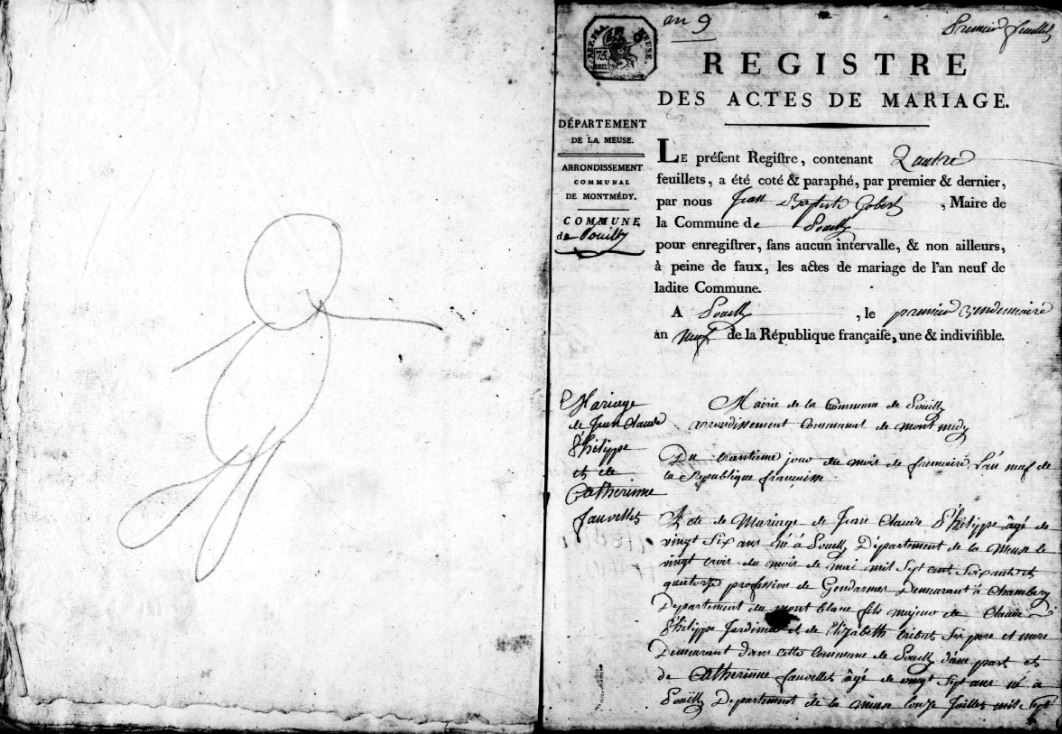 an 9
Premier feuillet
REP. FRA.
MEUSE.
75
cen
REGISTRE
DES ACTES DE MARIAGE.
DÉPARTEMENT
DE LA MEUSE.
ARRONDISSEMENT
COMMUNAL
DE MONTMÉDY.
COMMUNE
de Pouilly
LE préſent Regiſtre, contenant quatre
feuillets, a été coté & paraphé, par premier & dernier,
par nous Jean Baptiste Gobert, Maire de
la Commune de Pouilly
pour enregiſtrer, ſans aucun intervalle, & non ailleurs,
à peine de faux, les actes de mariage de l'an neuf de
ladite Commune.
A Pouilly, le premier vendemiaire
an neuf de la République françaiſe, une & indiviſible.
Mariage
de Jean Claude
Philippe
et de
Catherinne
fauvellet
Mairie de la Commune de Pouilly
arrondissement Communal de montmedy
Du trantieme jour du mois de frimaire L'an neuf de
la Republique françaisse
Acte de Mariage de Jean Claude Philippe âgé de
vingt Six ans né à Pouilly Département de la Meuse le
vingt trois du mois de mai mil Sept cent Soixante et
quatorze profession de Gendarme Demeurant à Chambery
Departement du mont blanc fils majeur de Claude
Philippe Jardinier et de Elizabeth Ses pere et mere
Demeurant dans cette Commune de Pouilly d'une part et
de Catherinne fauvellet âgé de vingt Sept ans né a
Pouilly Departement de la meuse Juillet mil Sept